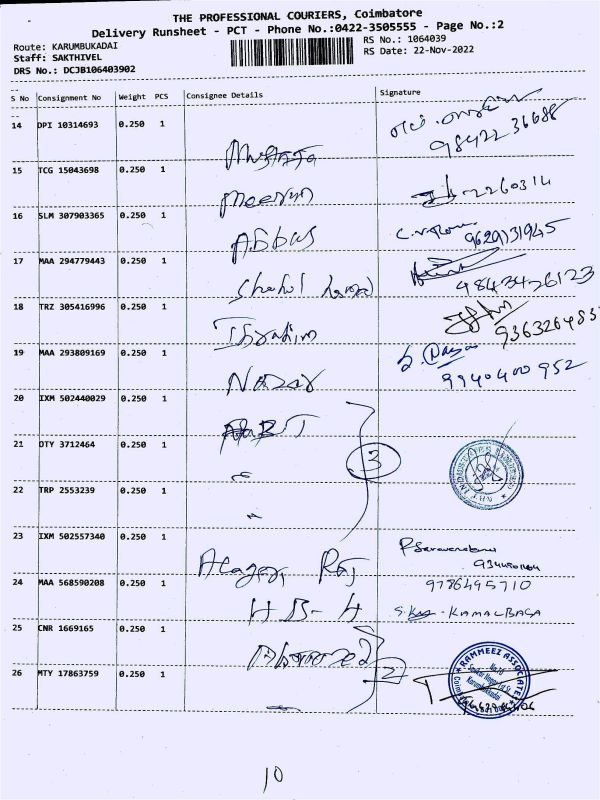 THE PROFESSIONAL COURIERS, Coimbatore
Delivery Runsheet - PCT - Phone No.:0422-3505555 - Page No.:2
Route: KARUMBUKADAI
RS No.: 1064039
Staff: SAKTHIVEL
RS Date: 22-Nov-2022
DRS No.: DCJB106403902
S No Consignment No Weight PCS Consignee Details Signature
14 DPI 10314693 0.250 1 Mustafa 98422 36688
15 TCG 15043698 0.250 1 Meeran 2260314
16 SLM 307903365 0.250 1 Abbas 9629131945
17 MAA 294779443 0.250 1 Shahul 9843426123
18 TRZ 305416996 0.250 1 Ibrahim
19 MAA 293809169 0.250 1 Nazar 9940400952
20 IXM 502440029 0.250 1
21 DTY 3712464 0.250 1 3
22 TRP 2553239 0.250 1
23 IXM 502557340 0.250 1 Alagar Raj
24 MAA 568590208 0.250 1 H B - H 9786495710
KAMALBAGA
25 CNR 1669165 0.250 1 2
26 MTY 17863759 0.250 1
RAMMEEZ ASSOCIATES
10